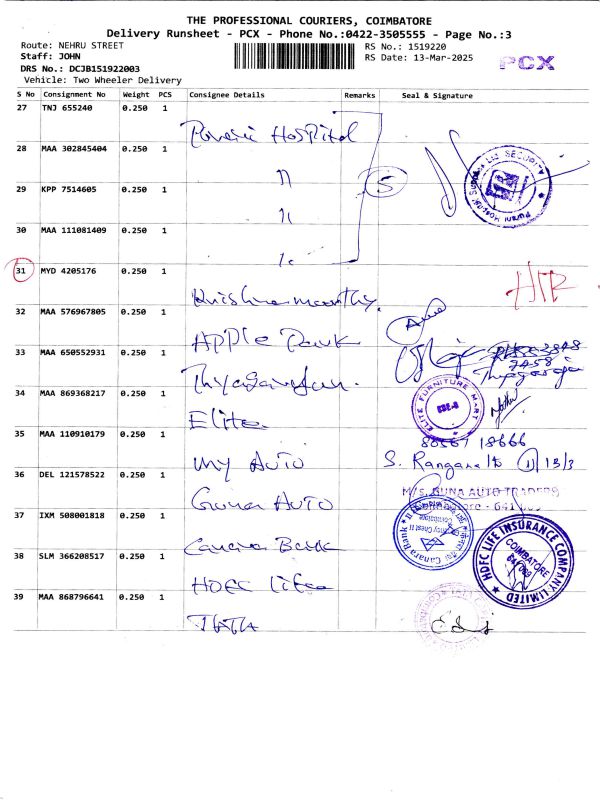 THE PROFESSIONAL COURIERS, COIMBATORE
Delivery Runsheet - PCX - Phone No.:0422-3505555 - Page No.:3
Route: NEHRU STREET RS No.: 1519220
Staff: JOHN RS Date: 13-Mar-2025 PCX
DRS No.: DCJB151922003
Vehicle: Two Wheeler Delivery
S No Consignment No Weight PCS Consignee Details Remarks Seal & Signature
27 TNJ 655240 0.250 1
Hospital
28 MAA 302845404 0.250 1
SECURITY
"
29 KPP 7514605 0.250 1 5
"
30 MAA 111081409 0.250 1
"
31 MYD 4205176 0.250 1
Krishnamoorthy.
32 MAA 576967805 0.250 1
Apple Park
33 MAA 650552931 0.250 1
34 MAA 869368217 0.250 1 ELITE FURNITURE MART
Elite
35 MAA 110910179 0.250 1 18666
My Auto S. 13/3
36 DEL 121578522 0.250 1 M/s. GUNA AUTO TRADERS
Guna AUTO
37 IXM 508001818 0.250 1 Canara Bank
Canara Bank
38 SLM 366208517 0.250 1 HDFC LIFE INSURANCE COMPANY LIMITED COIMBATORE
HDFC Life
39 MAA 868796641 0.250 1
TATA